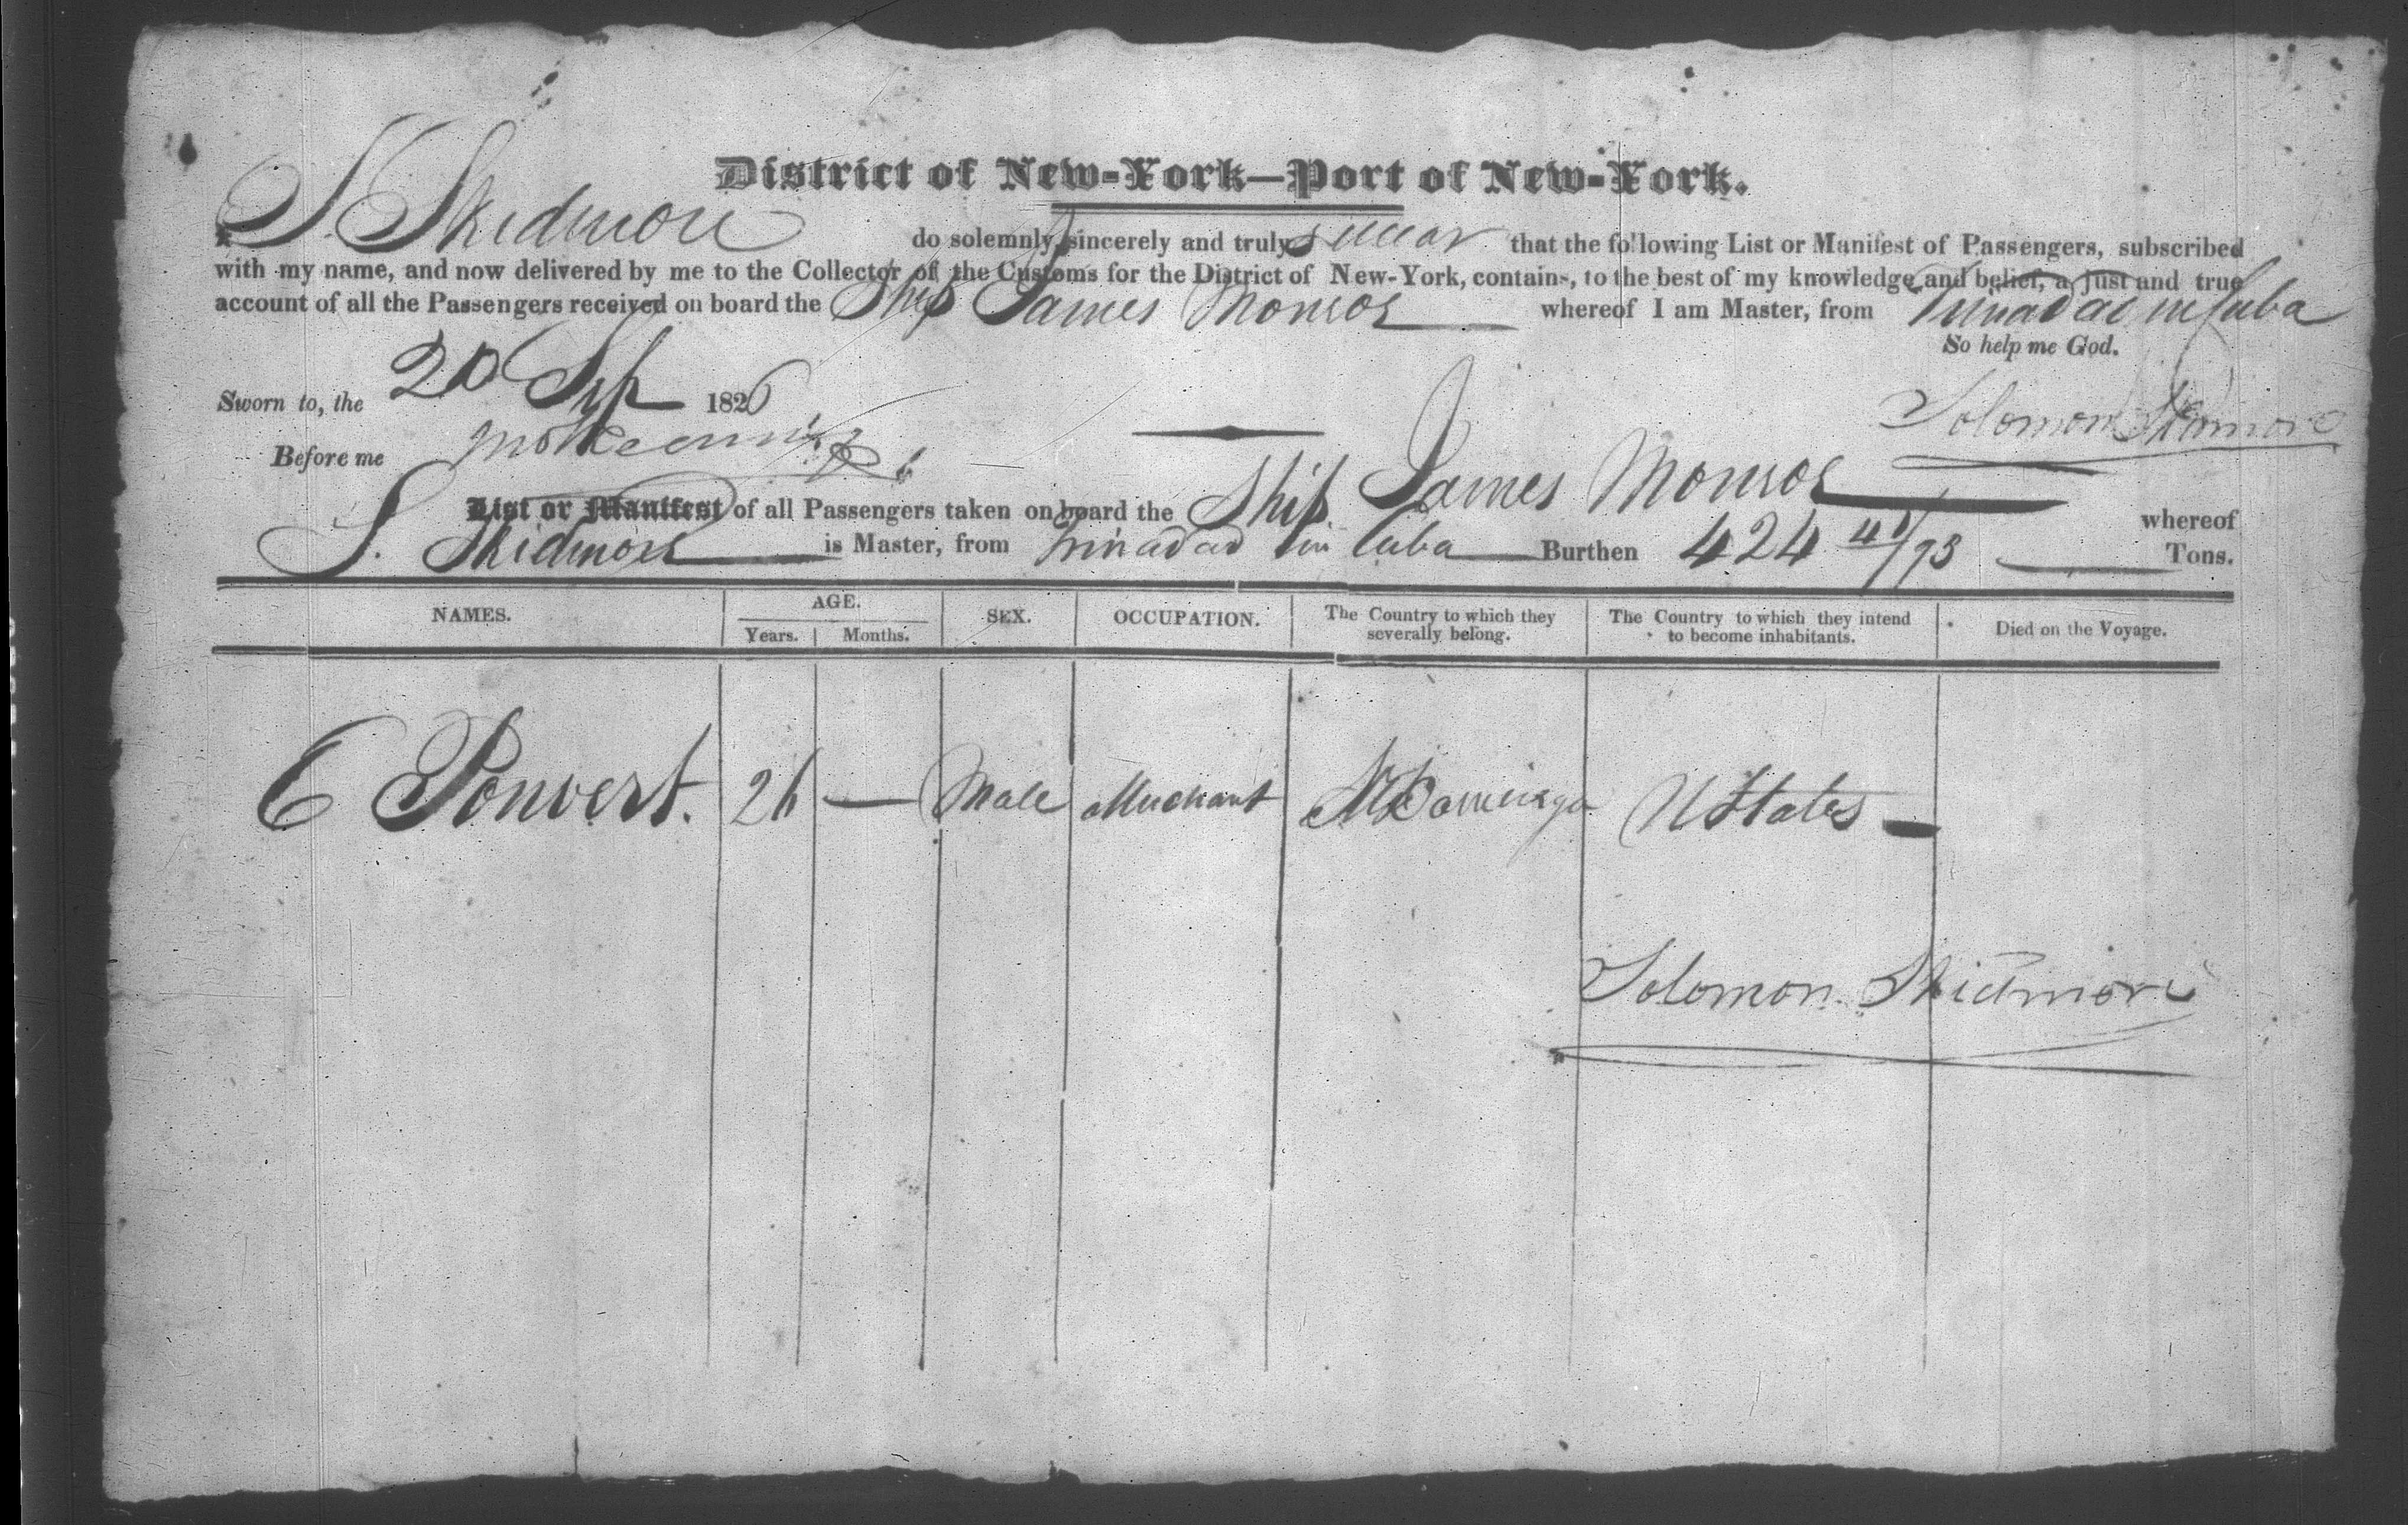 District of New-York—Port of New-York.
I S. Skidmore do solemnly, sincerely and truly swear that the following List or Manifest of Passengers, subscribed
with my name, and now delivered by me to the Collector of the Customs for the District of New-York, contains, to the best of my knowledge and belief, a just and true
account of all the Passengers received on board the Ship James Monroe whereof I am Master, from Trinadad in Cuba
So help me God.
Sworn to, the 20 Sep 1826
Solomon Skidmore
Before me
List or Manifest of all Passengers taken on board the Ship James Monroe whereof
S. Skidmore is Master, from Trinadad in Cuba Burthen 424 41/95 Tons.
NAMES. AGE. SEX. OCCUPATION. The Country to which they severally belong. The Country to which they intend to become inhabitants. Died on the Voyage.
Years. Months.
E Ponvert. 26 — Male Merchant St Domingo U States —
Solomon Skidmore